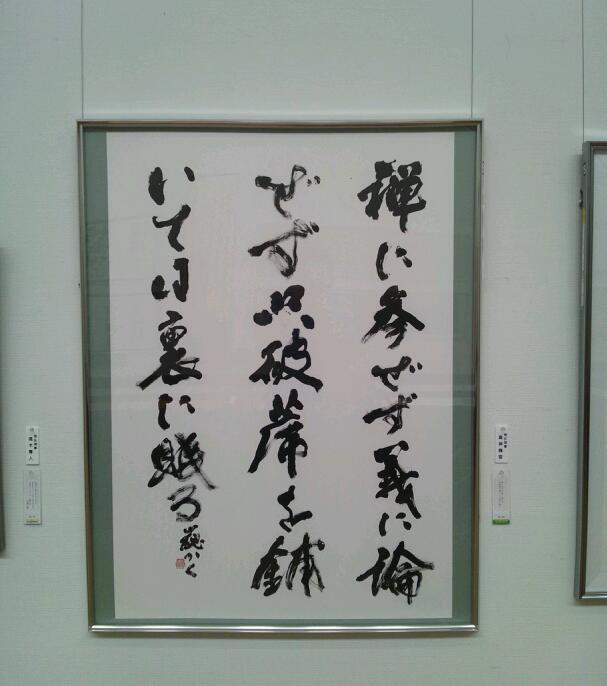 禅に参ぜず義に論
ぜず只破蓆を鋪
いて日裏に眠る